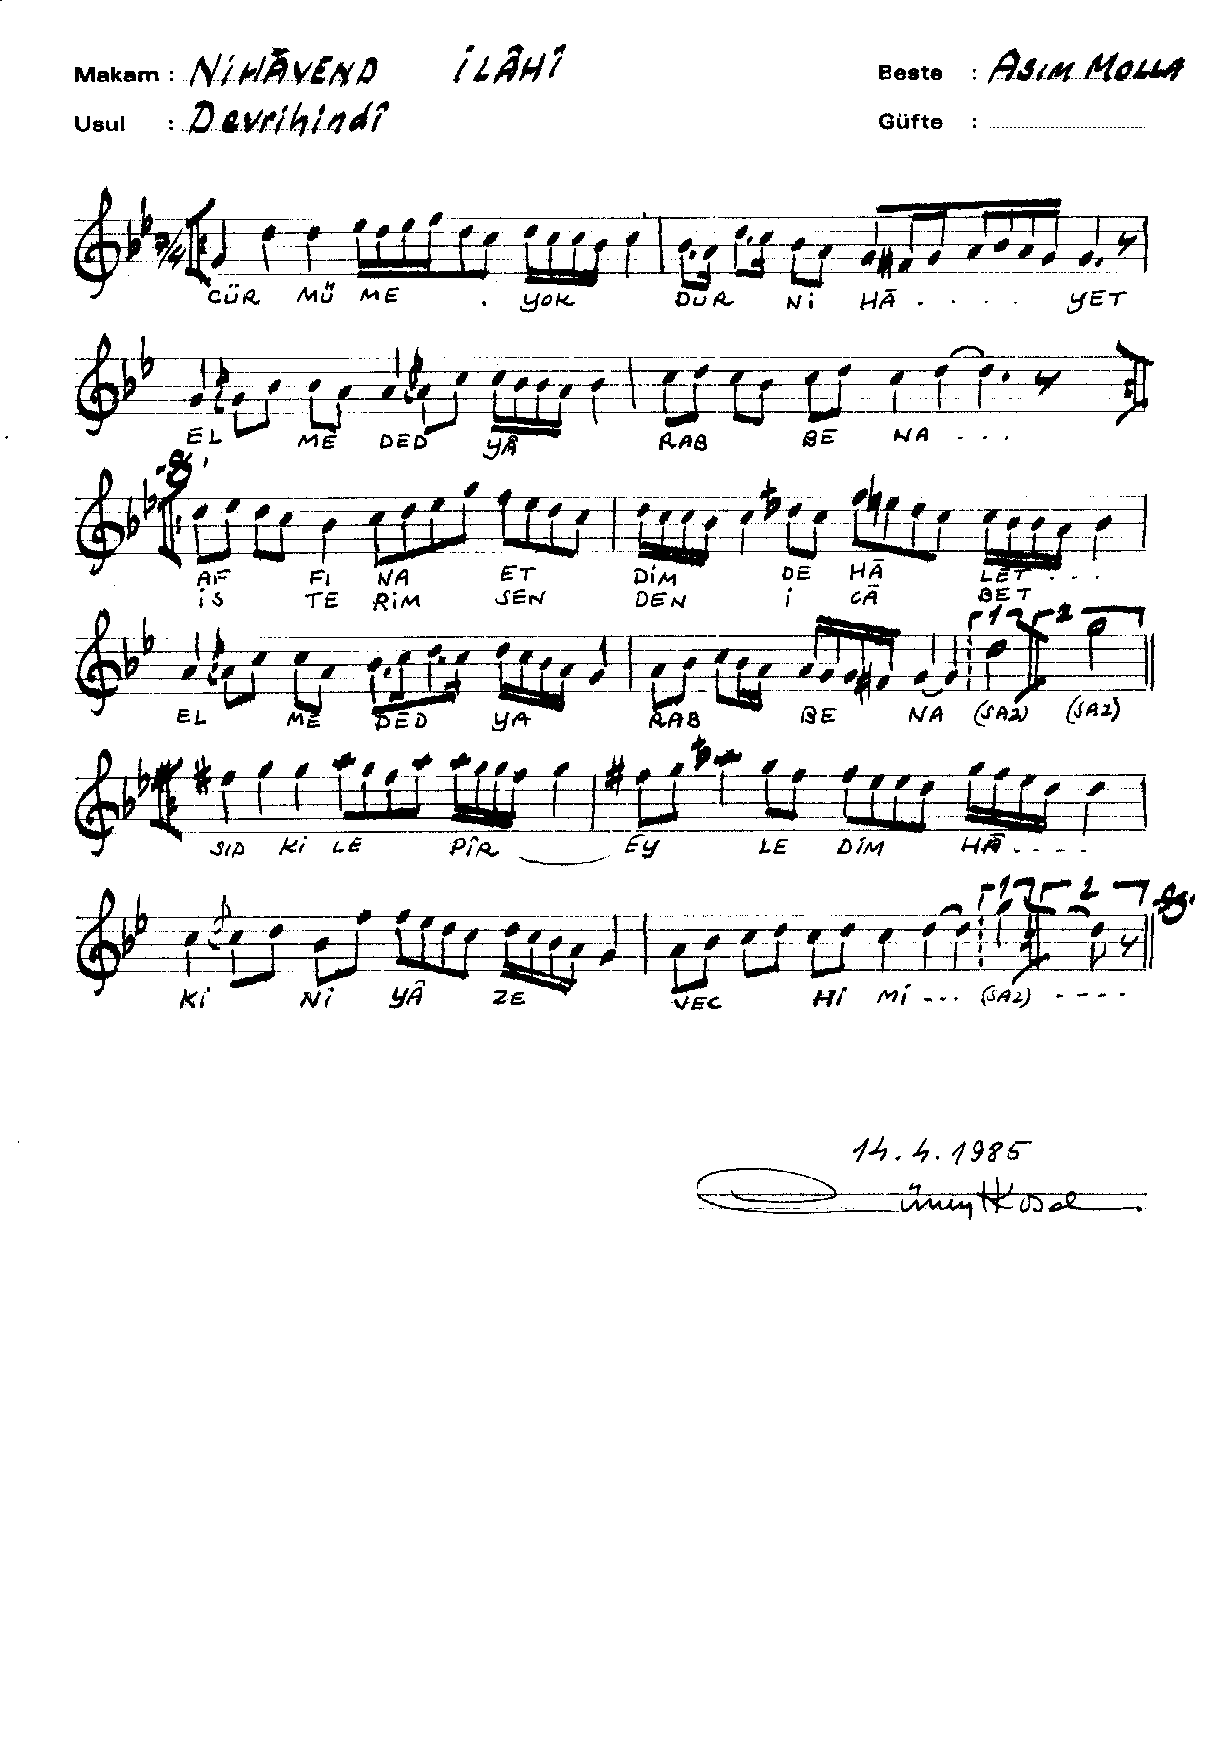 Makam : NİHĀVEND İLÂHÎ Beste : ASIM MOLLA
Usul : Devrihindî Güfte :
7/4
CÜR MÜ ME . YOK DUR Nİ HĀ . . . . YET
EL ME DED YÂ RAB BE NA - - -
AF FI NA ET DİM DE HĀ LET - - -
İS TE RİM SEN DEN İ CĀ BET
1 2
EL ME DED YA RAB BE NA (SAZ) (SAZ)
SID Kİ LE PÎR EY LE DİM HĀ - - - -
1 2
Kİ Nİ YÂ ZE VEC Hİ Mİ - - - (SAZ) - - - -
14.4.1985